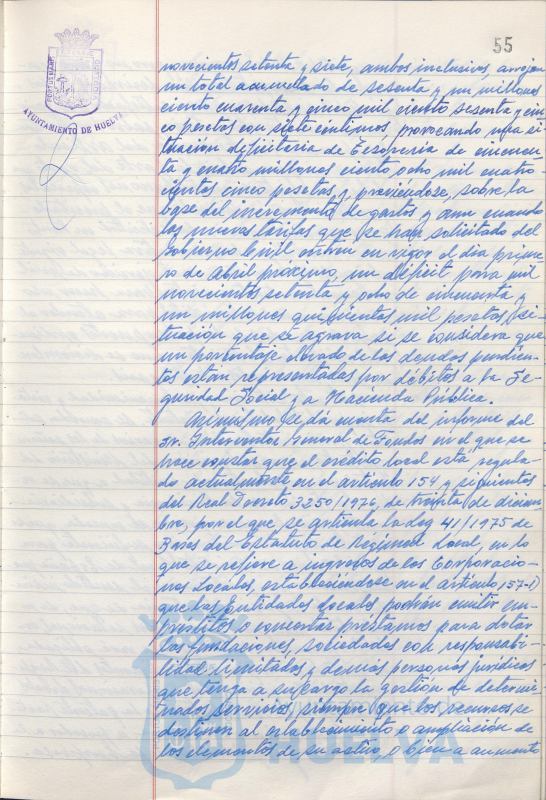 55
PORTUS MARIS
AYUNTAMIENTO DE HUELVA
novecientos setenta y siete, ambos inclusives, arrojan
un total acumulado de sesenta y un millones
ciento cuarenta y cinco mil ciento sesenta y cin
co pesetas con siete céntimos, provocando una si-
tuación deficitaria de Tesorería de cincuen-
ta y cuatro millones ciento ocho mil cuatro-
cientas cinco pesetas, y previéndose, sobre la
base del incremento de gastos y aun cuando
las nuevas tarifas que se han solicitado del
Gobierno Civil entren en vigor el día prime-
ro de Abril próximo, un déficit para mil
novecientos setenta y ocho de cincuenta y
un millones quinientas mil pesetas, si-
tuación que se agrava si se considera que
un porcentaje elevado de las deudas pendien-
tes están representadas por débitos a la Se-
guridad Social y a Hacienda Pública.
Asimismo se dá cuenta del informe del
Sr. Interventor General de Fondos en el que se
hace constar que el crédito local está regula-
do actualmente en el artículo 154 y siguientes
del Real Decreto 3250/1976, de treinta de diciem-
bre, por el que se articula la Ley 41/1975 de
Bases del Estatuto de Régimen Local, en lo
que se refiere a ingresos de las Corporacio-
nes Locales, estableciéndose en el artículo 157-1)
que las Entidades Locales podrán emitir em-
préstitos o concertar préstamos para dotar
las fundaciones, sociedades con responsabi-
lidad limitada y demás personas jurídicas
que tenga a su cargo la gestión de determi-
nados servicios, siempre que los recursos se
destinen al establecimiento o ampliación de
los elementos de su activo, o bien a aumento
HUELVA